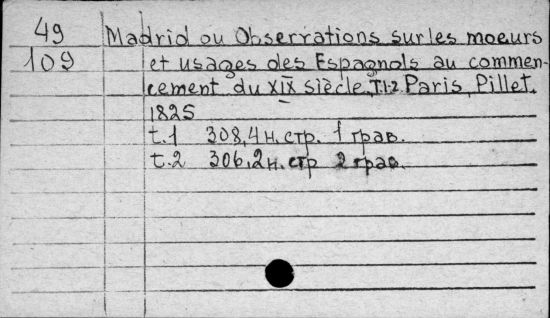 49 Madrid ou Obserrations sur les moeurs
109 et usages des Espagnols au commen-
cement du XIX siècle. T.1-2. Paris, Pillet.
1825
t.1 308, 4 н. стр. 1 грав.
t.2 306, 2 н. стр 2 грав.